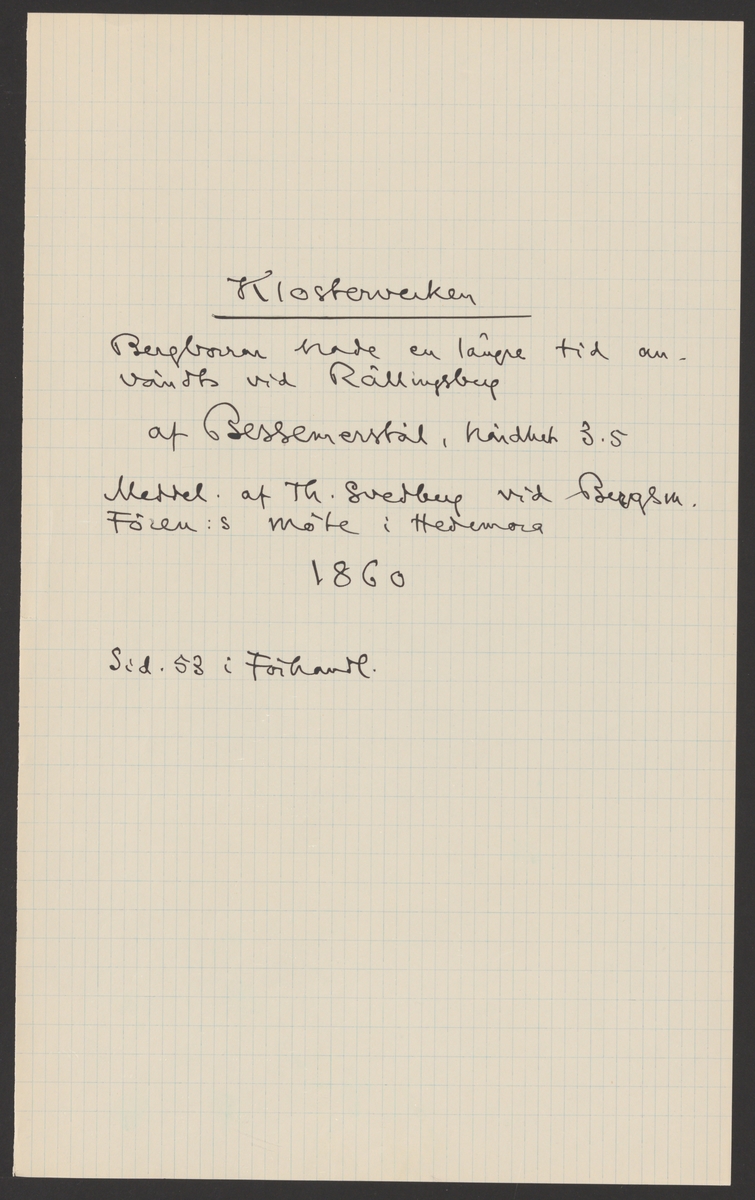 Klosterverken
Bergborrar hade en längre tid an-
vändts vid Rällingsberg
af Bessemerstål, hårdhet 3.5
Meddel. af Th. Svedberg vid Bergsm.
Fören:s möte i Hedemora
1860
Sid. 53 i Förhandl.